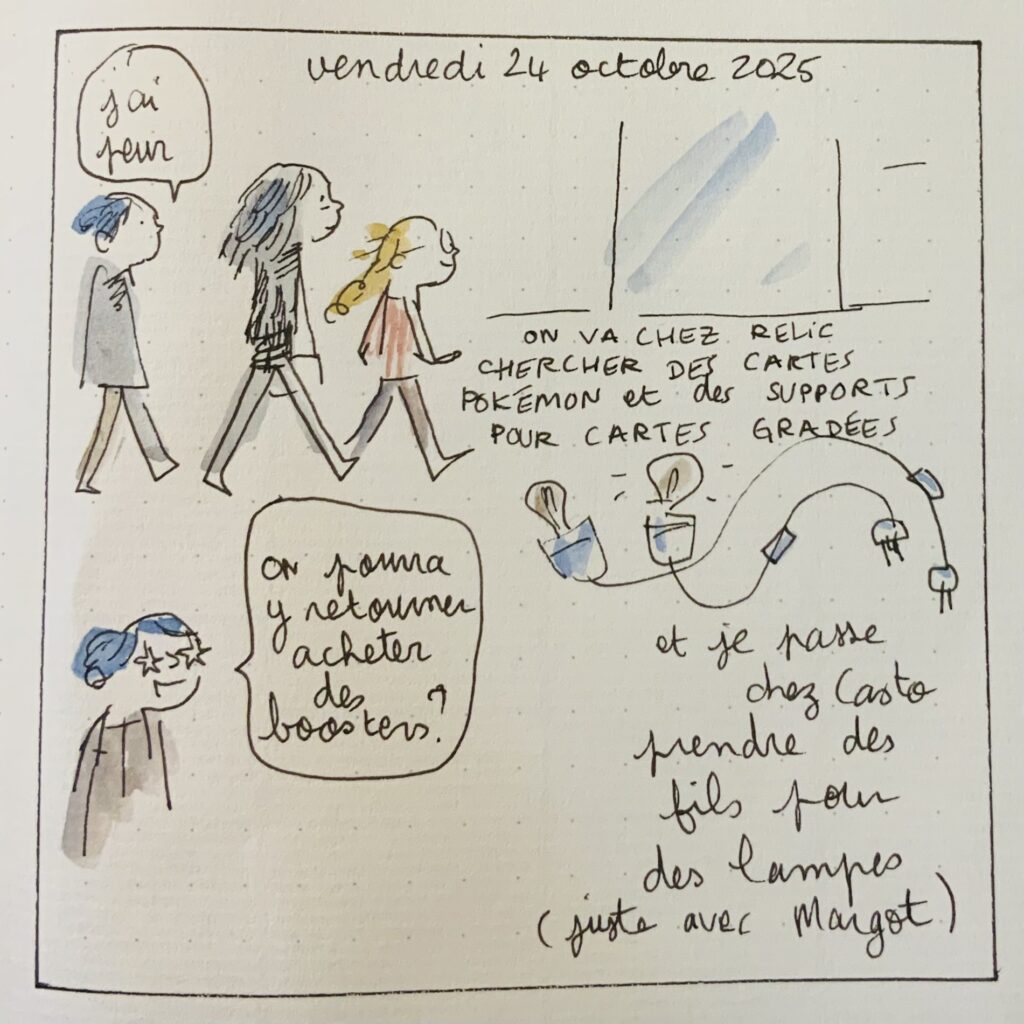 vendredi 24 octobre 2025
j'ai
peur
ON VA CHEZ RELIC
CHERCHER DES CARTES
POKÉMON et des SUPPORTS
POUR CARTES GRADÉES
ON pourra
y retourner
acheter
des
boosters?
et je passe
chez Casto
prendre des
fils pour
des lampes
(juste avec Margot)